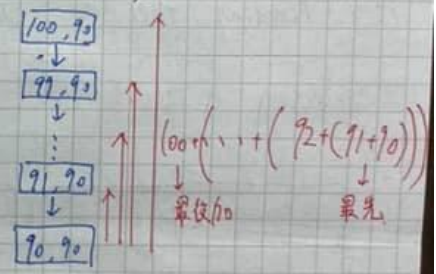 100,90
99,90
⋮
91,90
90,90
100+(、、+(92+(91+90)))
最後加
最先